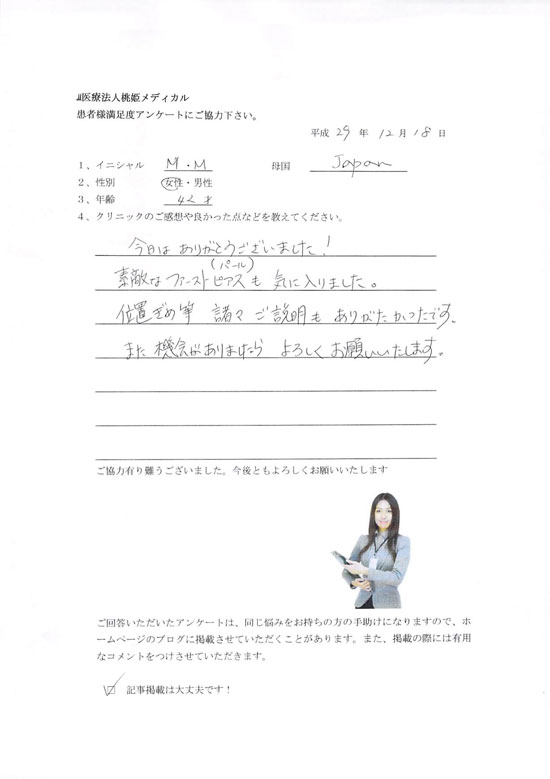 医療法人桃姫メディカル
患者様満足度アンケートにご協力下さい。
平成 29 年 12 月 18 日
1、イニシャル M・M 母国 Japan
2、性別 女性・男性
3、年齢 才
4、クリニックのご感想や良かった点などを教えてください。
今日は ありがとうございました!
(パール)
素敵な ファーストピアスも 気に入りました。
位置ぎめ等 諸々 ご説明も ありがたかったです。
また 機会がありましたら よろしく お願いいたします。
ご協力有り難うございました。今後ともよろしくお願いいたします
ご回答いただいたアンケートは、同じ悩みをお持ちの方の手助けになりますので、ホ
ームページのブログに掲載させていただくことがあります。また、掲載の際には有用
なコメントをつけさせていただきます。
記事掲載は大丈夫です!